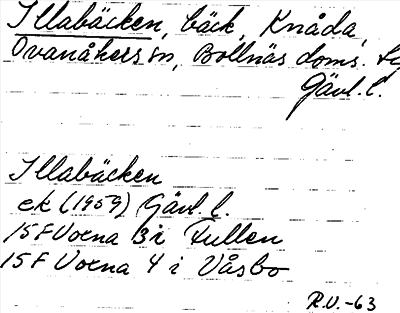 Illabäcken, bäck, Knåda,
Ovanåkers sn, Bollnäs doms.
Gävl. l.
Illabäcken
ek (1959) Gävl. l.
15F Voxna 3 i Fullen
15F Voxna 4 i Våsbo
R.V. -63